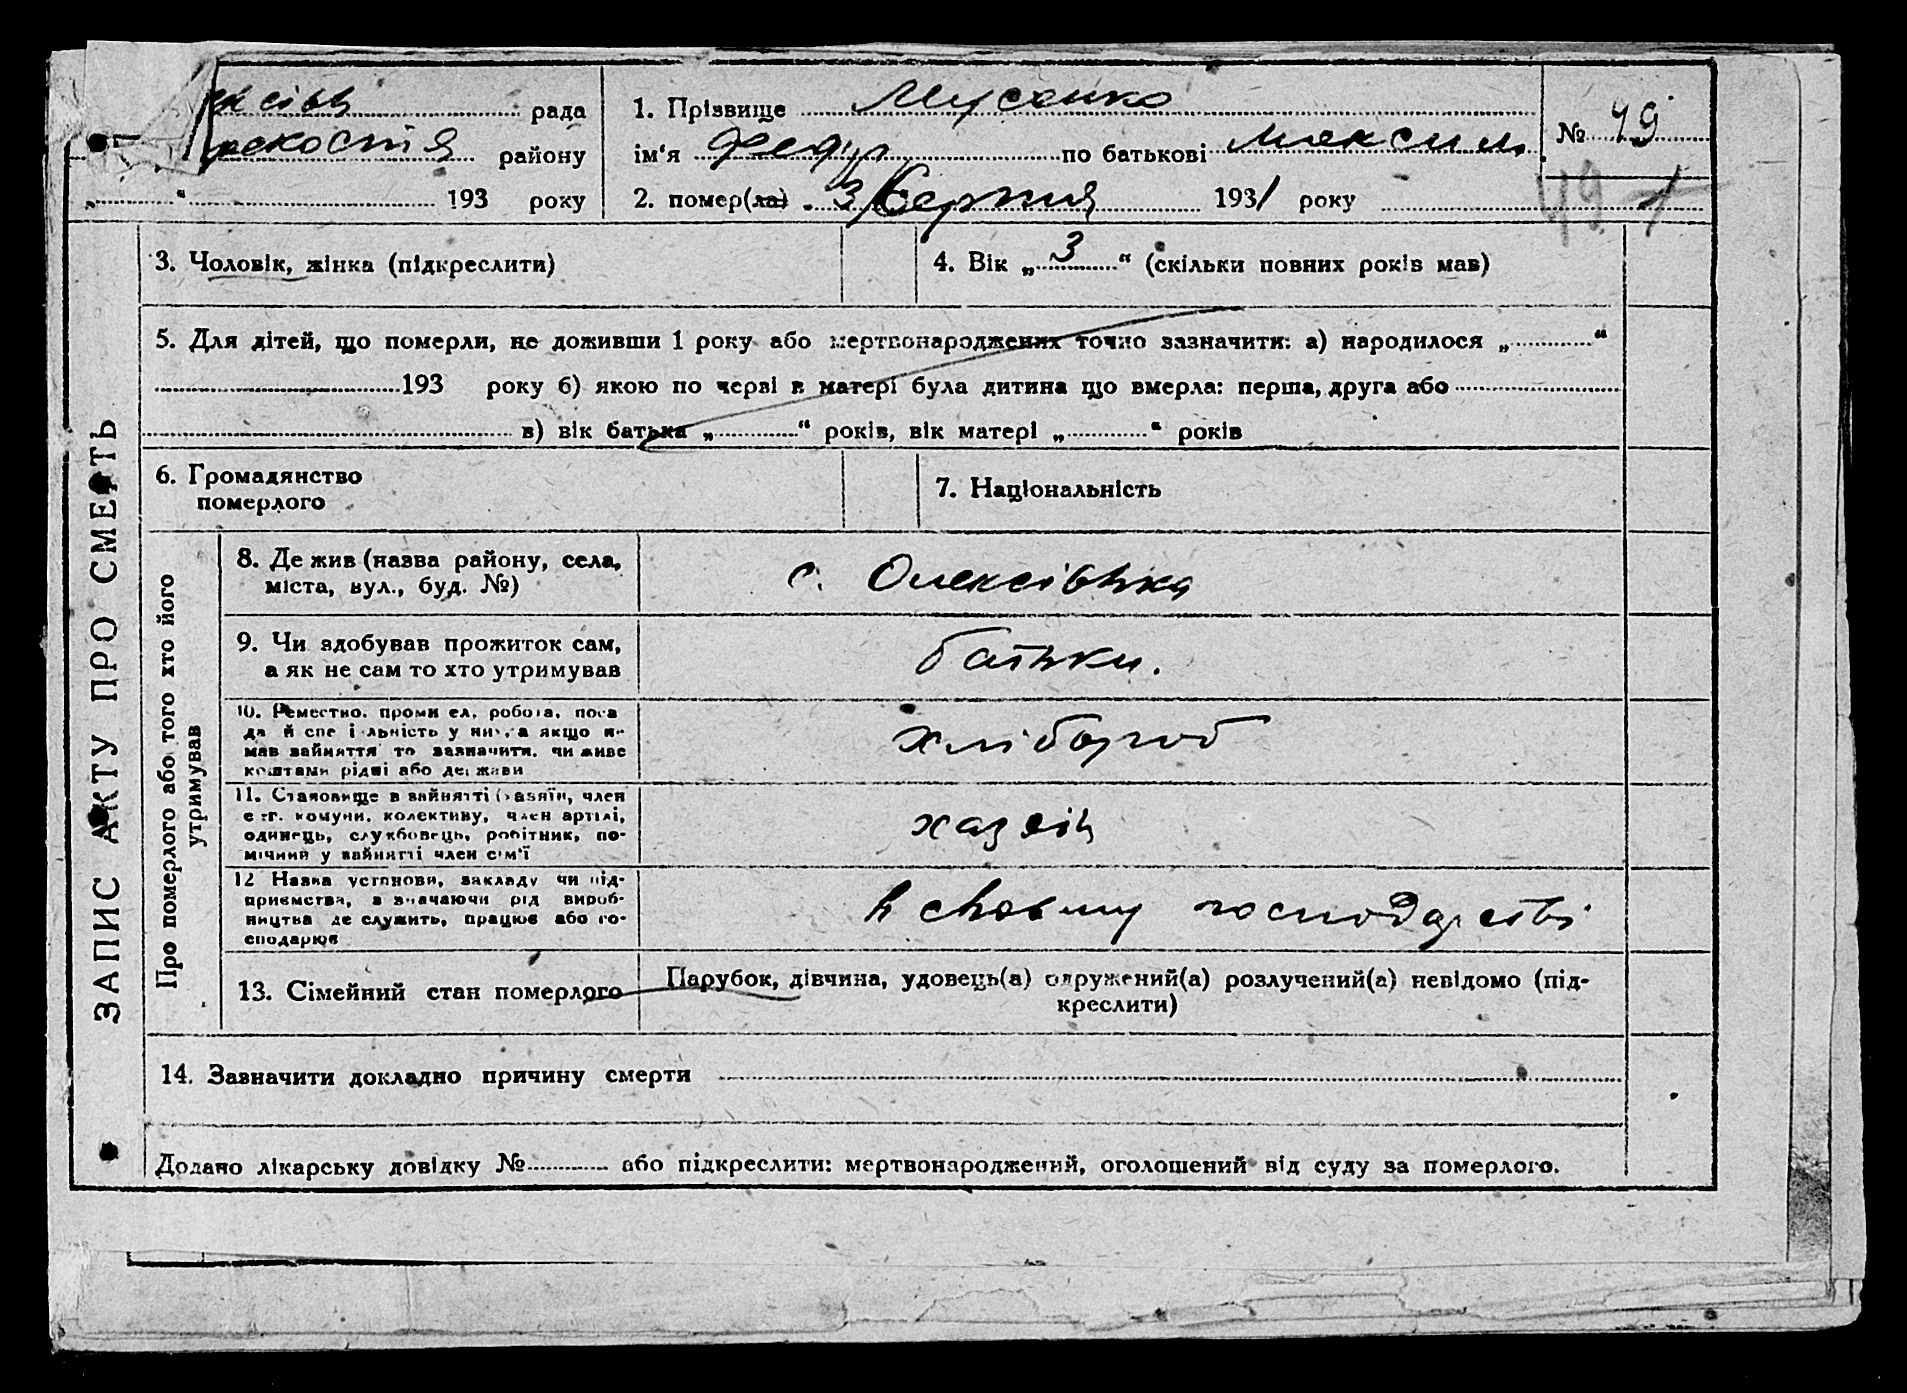 ксівц рада
району
„ “ 193 року
1. Прізвище Мусенко
ім‘я Федір по батькові Максим.
2. помер(ла) 3 Серпня 1931 року
№ 49
49 1
ЗАПИС АКТУ ПРО СМЕРТЬ
3. Чоловік, жінка (підкреслити)
4. Вік „ 3 “ (скільки повних років мав)
5. Для дітей, що померли, не доживши 1 року або мертвонароджених точно зазначити: а) народилося „ “
193 року б) якою по черзі в матері була дитина що вмерла: перша, друга або
в) вік батька „ “ років, вік матері „ “ років
6. Громадянство
померлого
7. Національність
Про померлого або того хто його
утримував
8. Де жив (назва району, села,
міста, вул., буд. №)
с. Олексівка
9. Чи здобував прожиток сам,
а як не сам то хто утримував
батьки.
10. Ремество, промисел, робота, поса
да й спеціяльність у ній, а якщо н-
мав зайняття то зазначити, чи живе
коштами рідні або держави
хлібороб
11. Становище в зайнятті (хазяїн, член
с.-г. комуни, колективу, член артілі,
одинець, службовець, робітник, по-
мічний у зайнятті член сім‘ї
хазяїн
12 Назва установи, закладу чи під-
приємства, зазначаючи рід вироб-
ництва де служить, працює або го-
сподарює
в своєму господарстві
13. Сімейний стан померлого
Парубок, дівчина, удовець(а) одружений(а) розлучений(а) невідомо (під-
креслити)
14. Зазначити докладно причину смерти
Додано лікарську довідку № або підкреслити: мертвонароджений, оголошений від суду за померлого.